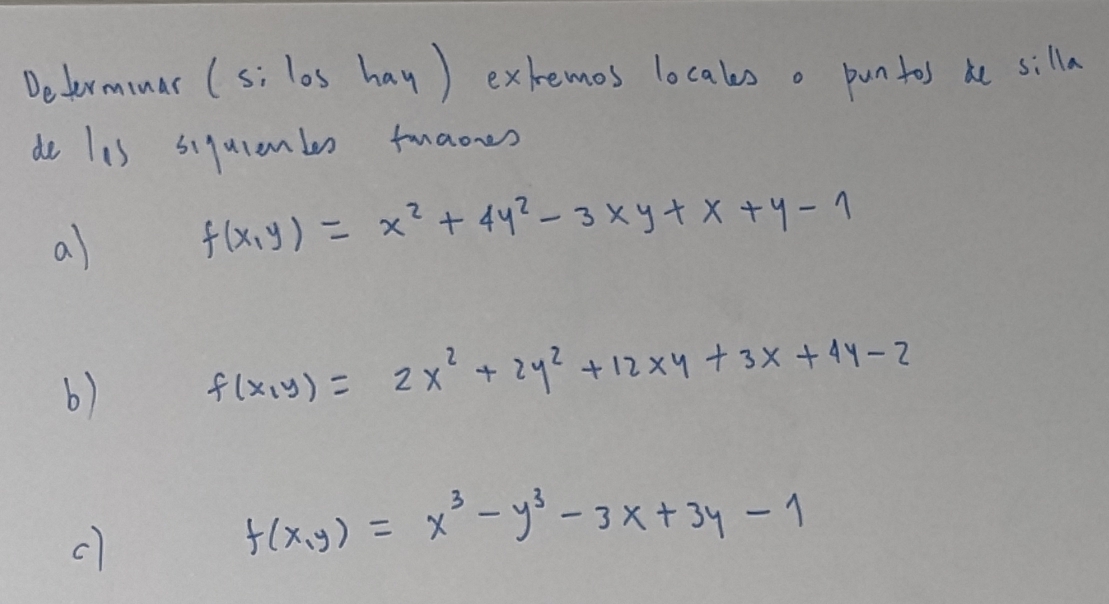 Determinar (si los hay) extremos locales o puntos de silla
de las siguientes funciones
a) f(x,y) = x² + 4y² - 3xy + x + y - 1
b) f(x,y) = 2x² + 2y² + 12xy + 3x + 4y - 2
c) f(x,y) = x³ - y³ - 3x + 3y - 1